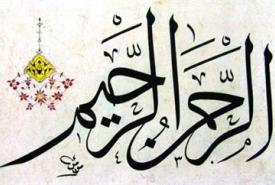 الرَّحمنِ الرَّحيم